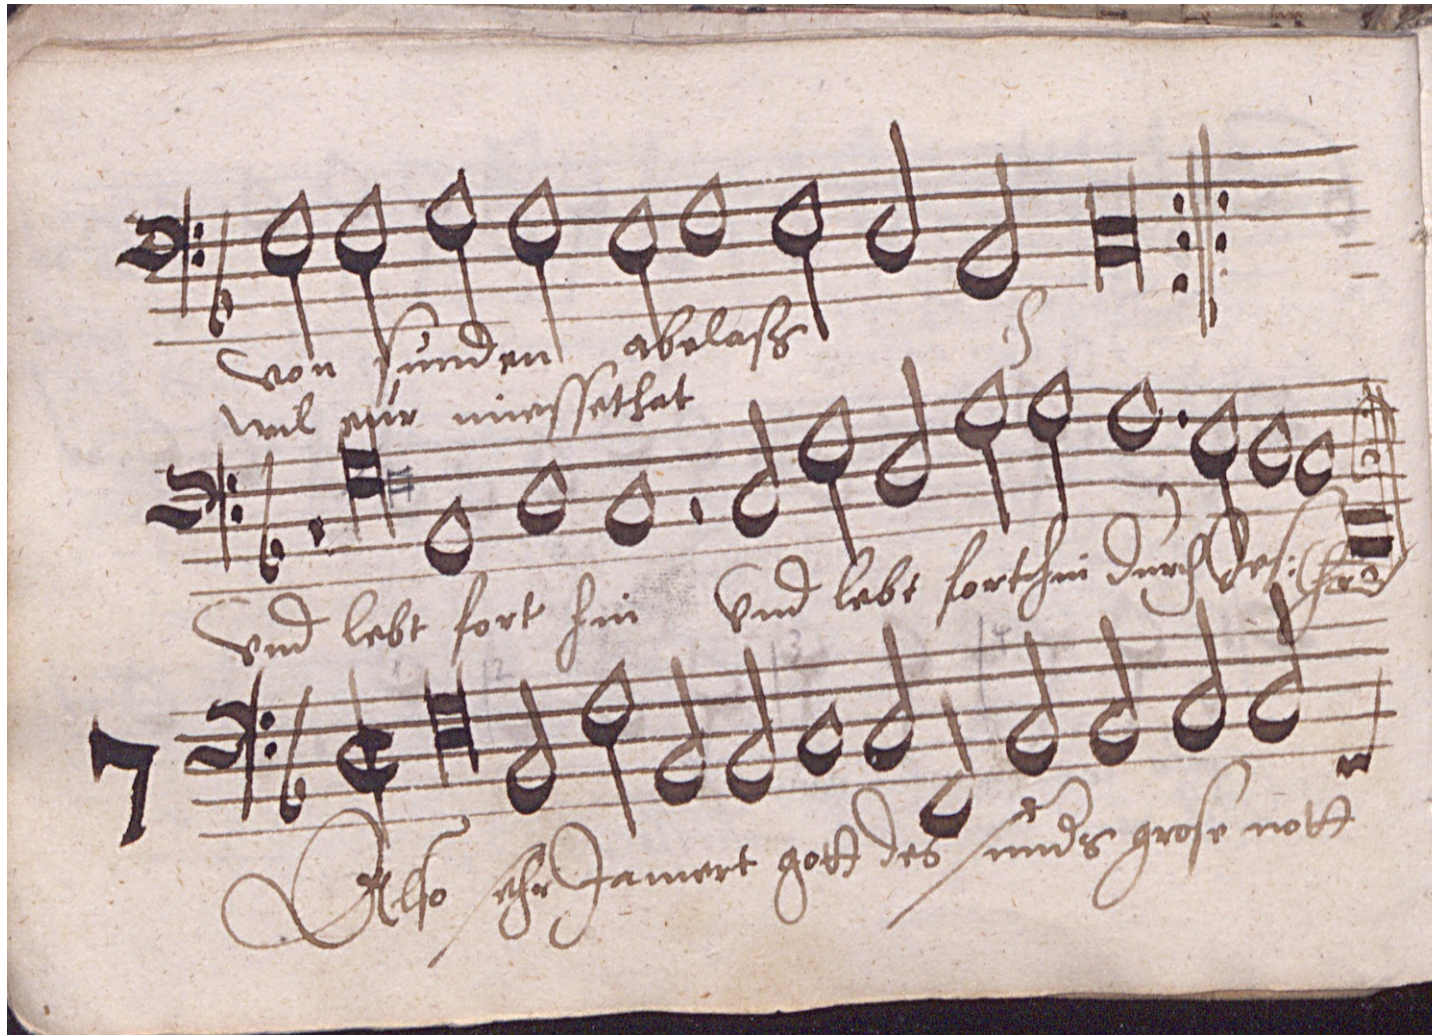 von sunden abelaß
wil eur miessethat
vnd lebt fort hin vnd lebt forthin durch des:
7
Also sehr Jamert gott des sunders grose nott